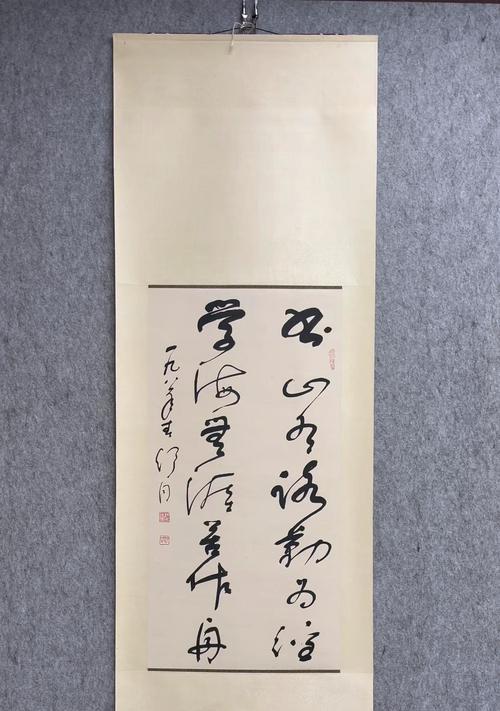 书山有路勤为径
学海無涯苦作舟
一九八年